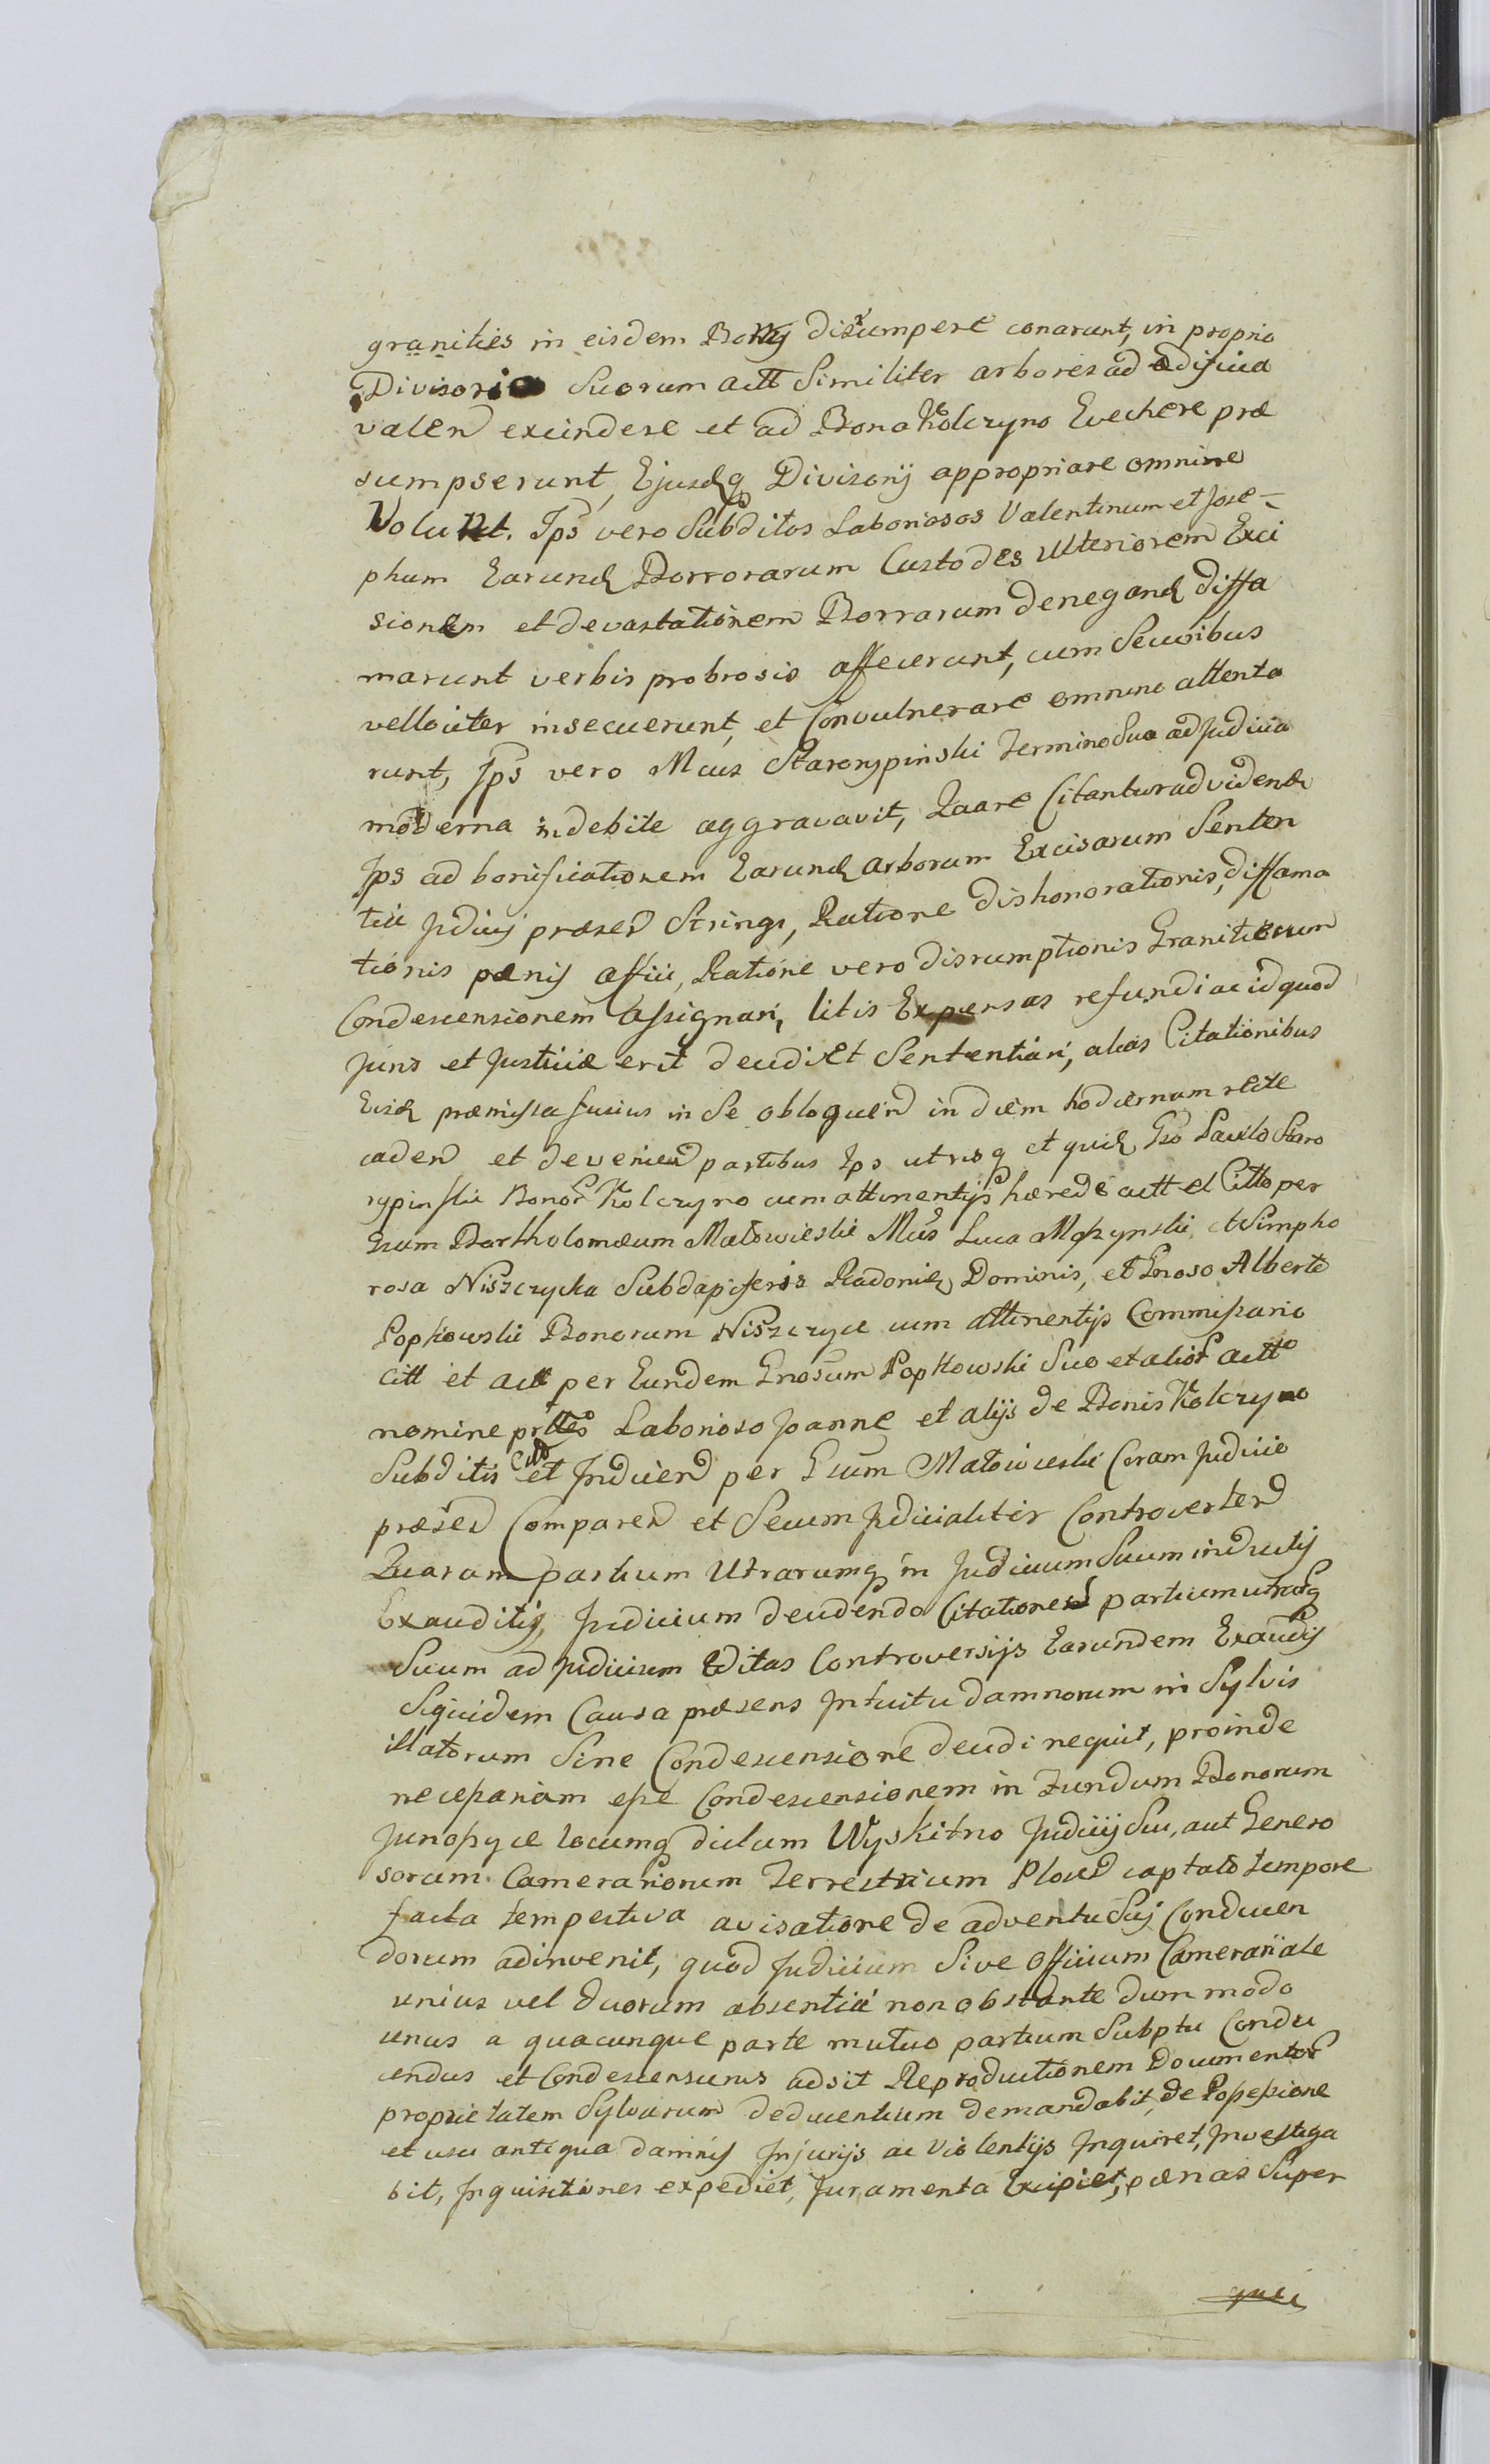 granities in eisdem Bonis disrumpere conarunt, in proprio
Divisorio Suorum actt Similiter arbores ad ædificia
valen excindere et ad Bona Kolczyno Evechere præ
sumpserunt, Ejusdq Divisorij appropriare omnino
Volunt. Ips vero Subditos Laboriosos Valentinum et Jose-
phum Earund Borrorarum Custodes ulteriorem Exci
sionem et devastationem Borrarum denegand diffa
marunt verbis probrosis affecerunt, cum Securibus
vellociter insecuerunt, et Convulnerare omnino attenta
runt, Ips vero Mcus Starorypinski Termino Suo ad Judicia
moderna indebite aggravavit, Quare Citantur ad vidend
Ips ad bonificationem Earund arborum Excisarum Senten
tia Judicij præsen Stringi, Ratione dishonorationis, diffama
tionis pænis affici, Ratione vero disrumptionis Granitierum
Condescensionem assignari, litis Expensas refundi ac id quod
Juris et Justitiæ erit decidi et Sententiari, alias Citationibus
Eisd præmissa fusius in Se obloquen in diem hodiernam recte
caden et devenien partibus Ips utrisq et quid Gso Paulo Staro
rypinski Bonor Kolczyno cum attinentijs hærede actt et Citto per
Gsum Bartholomæum Małowieski Mcis Luca Mokzynski, et Simpho
rosa Niszczycka Subdapiferis Radonien Dominis, et Gnoso Alberto
Popkowski Bonorum Niszczyce cum attinentijs Commissario
citt et actt per Eundem Gnosum Popkowski Suo et alior actto
nomine Laborioso Joanne et alijs de Bonis Kolczyno
Subditis citt et Inducen per Gsum Małowieski Coram Judicio
præsen Comparen et Secum Judicialiter Controverten
Quarum partium Utrarumq in Judicium Suum inductis
Exauditis, Judicium decidendo Citationes partium utrarq
Suum ad Judicium Editas Controversijs Earundem Exauditis
Siquidem Causa præsens Intuitu damnorum in Sylvis
illatorum Sine Condescensione decidi nequit, proinde
necessariam esse Condescensionem in Fundum Bonorum
locumq dictum Wyskitno Judicij Sui, aut Genero
sorum Camerariorum Terrestrium Plocen captato tempore
facta tempestiva avisatione de adventu Sui Conducen
dorum adinvenit, quod Judicium Sive Officium Camerariale
unius vel duorum absentia non obstante dum modo
unus a quacunque parte mutuo partium Subptu Condu
cendus et Condescensurus adsit Reproductionem Documentor
proprietatem Sylvarum deducentium demandabit, de Possessione
et usu antiqua damnis Injurijs ac Violentijs Inquiret, Investiga
bit, Inquisitiones expediet, Juramenta Excipiet, pænas Super